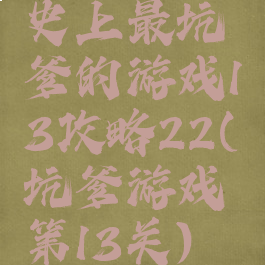 史上最坑
爹的游戏1
3攻略22(
坑爹游戏
第13关)